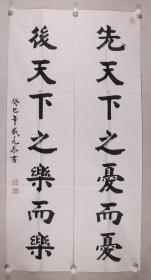 先天下之憂而憂
後天下之樂而樂
癸巳年咸元春書